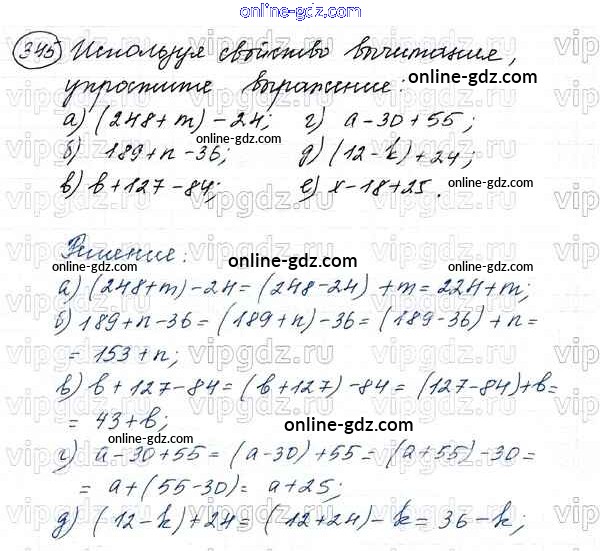 online-gdz.com
345 Используя свойство вычитания,
online-gdz.com
упростите выражение:
а) (248+m)-24; г) a-30+55;
online-gdz.com
б) 189+n-36; д) (12-k)+24;
в) b+127-84; е) x-18+25.
online-gdz.com
vipgdz.ru vipgdz.ru
Решение:
online-gdz.com
online-gdz.com online-gdz.com
а) (248+m)-24=(248-24)+m=224+m;
б) 189+n-36=(189+n)-36=(189-36)+n=
= 153+n;
vipgdz.ru vipgdz.ru
в) b+127-84=(b+127)-84=(127-84)+b=
= 43+b;
online-gdz.com
online-gdz.com online-gdz.com
г) a-30+55=(a-30)+55=(a+55)-30=
= a+(55-30)=a+25;
online-gdz.com
д) (12-k)+24=(12+24)-k=36-k;